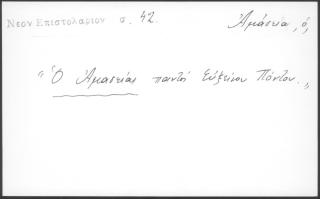 Νεον Επιστολαριον σ. 42.
Ἀμάσεια, ὁ,
"Ὁ Ἀμασείας παντὸς Εὐξείνου Πόντου."